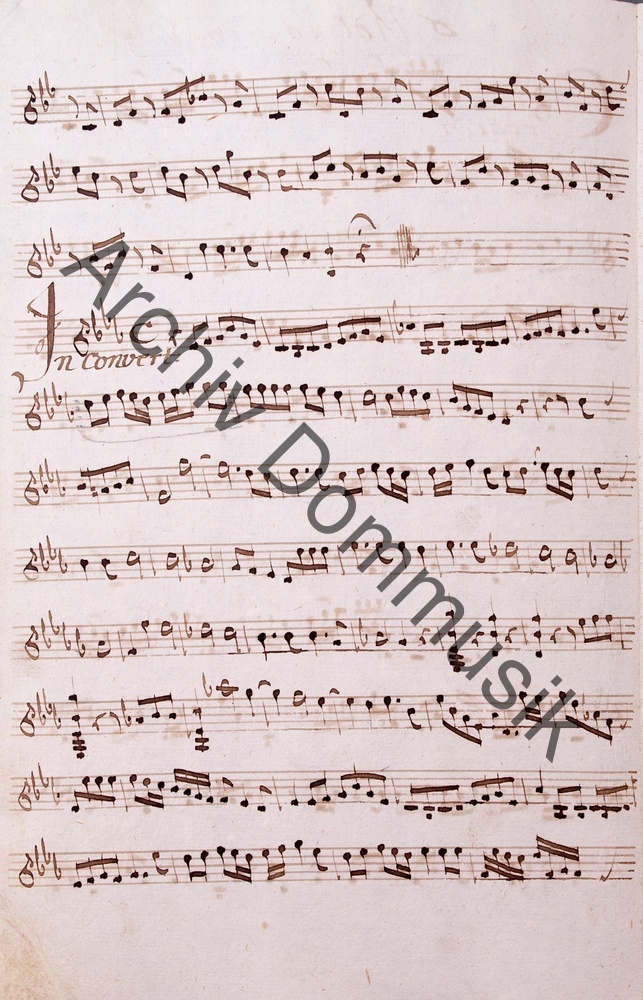 In convert
Archiv Dommusik